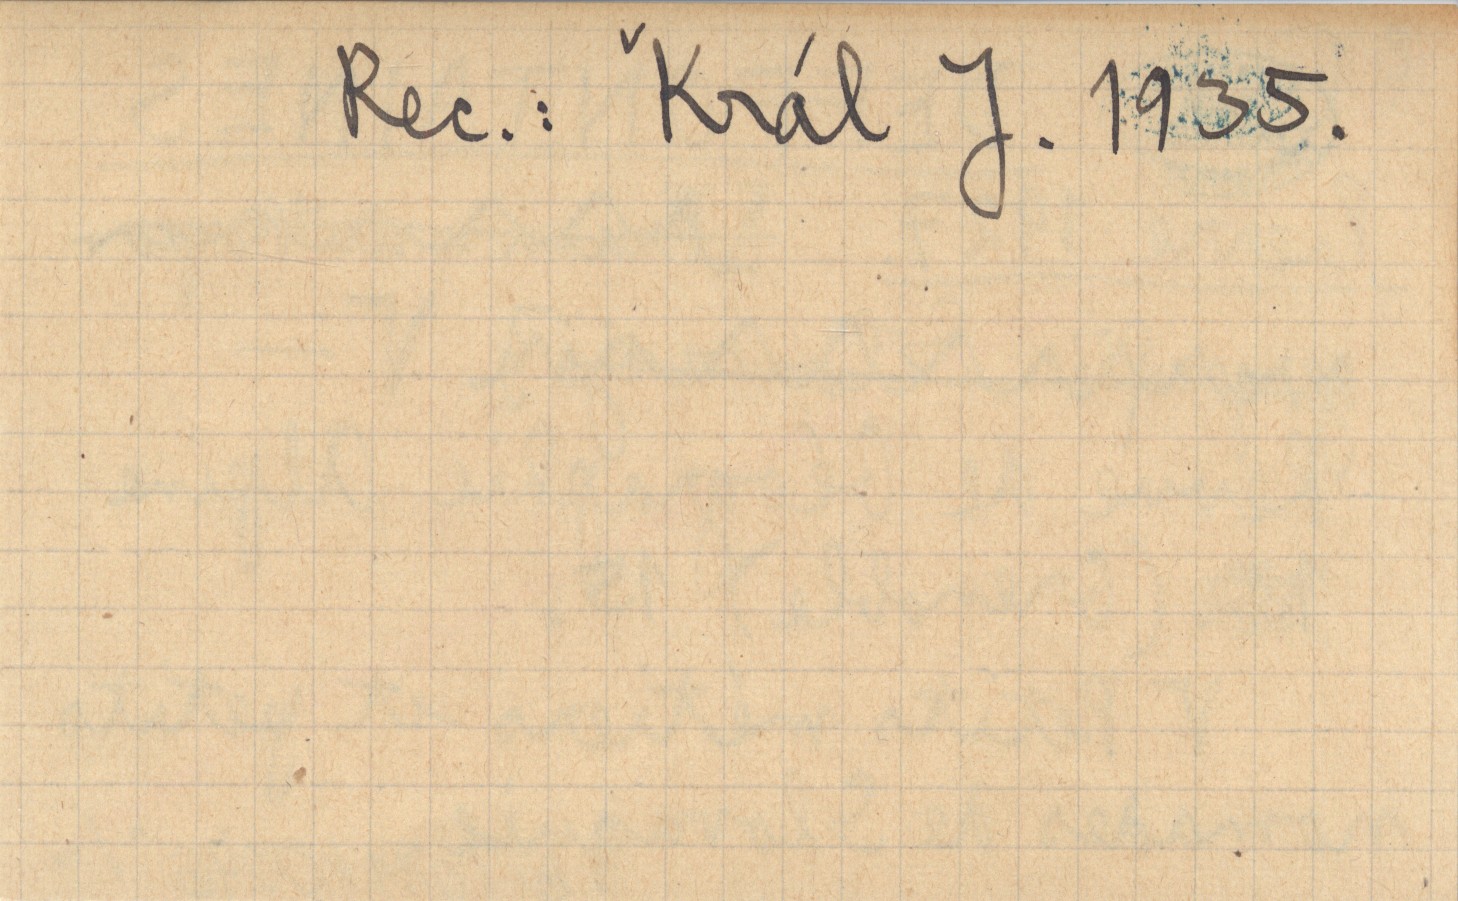 Rec.: ˇKrál J. 1935.